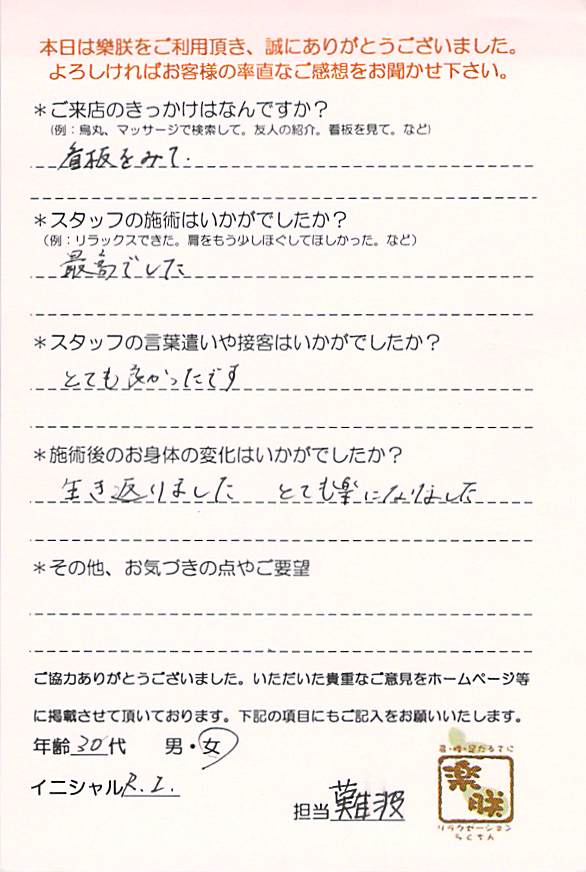 本日は樂朕をご利用頂き、誠にありがとうございました。
よろしければお客様の率直なご感想をお聞かせ下さい。
＊ご来店のきっかけはなんですか？
(例：烏丸、マッサージで検索して。友人の紹介。看板を見て。など)
看板をみて.
＊スタッフの施術はいかがでしたか？
(例：リラックスできた。肩をもう少しほぐしてほしかった。など)
最高でした
＊スタッフの言葉遣いや接客はいかがでしたか？
とても良かったです
＊施術後のお身体の変化はいかがでしたか？
生き返りました とても楽になりました
＊その他、お気づきの点やご要望
ご協力ありがとうございました。いただいた貴重なご意見をホームページ等
に掲載させて頂いております。下記の項目にもご記入をお願いいたします。
年齢 30代 男・女
イニシャル R.I.
担当 難波
楽朕
リラクゼーション
らくちん